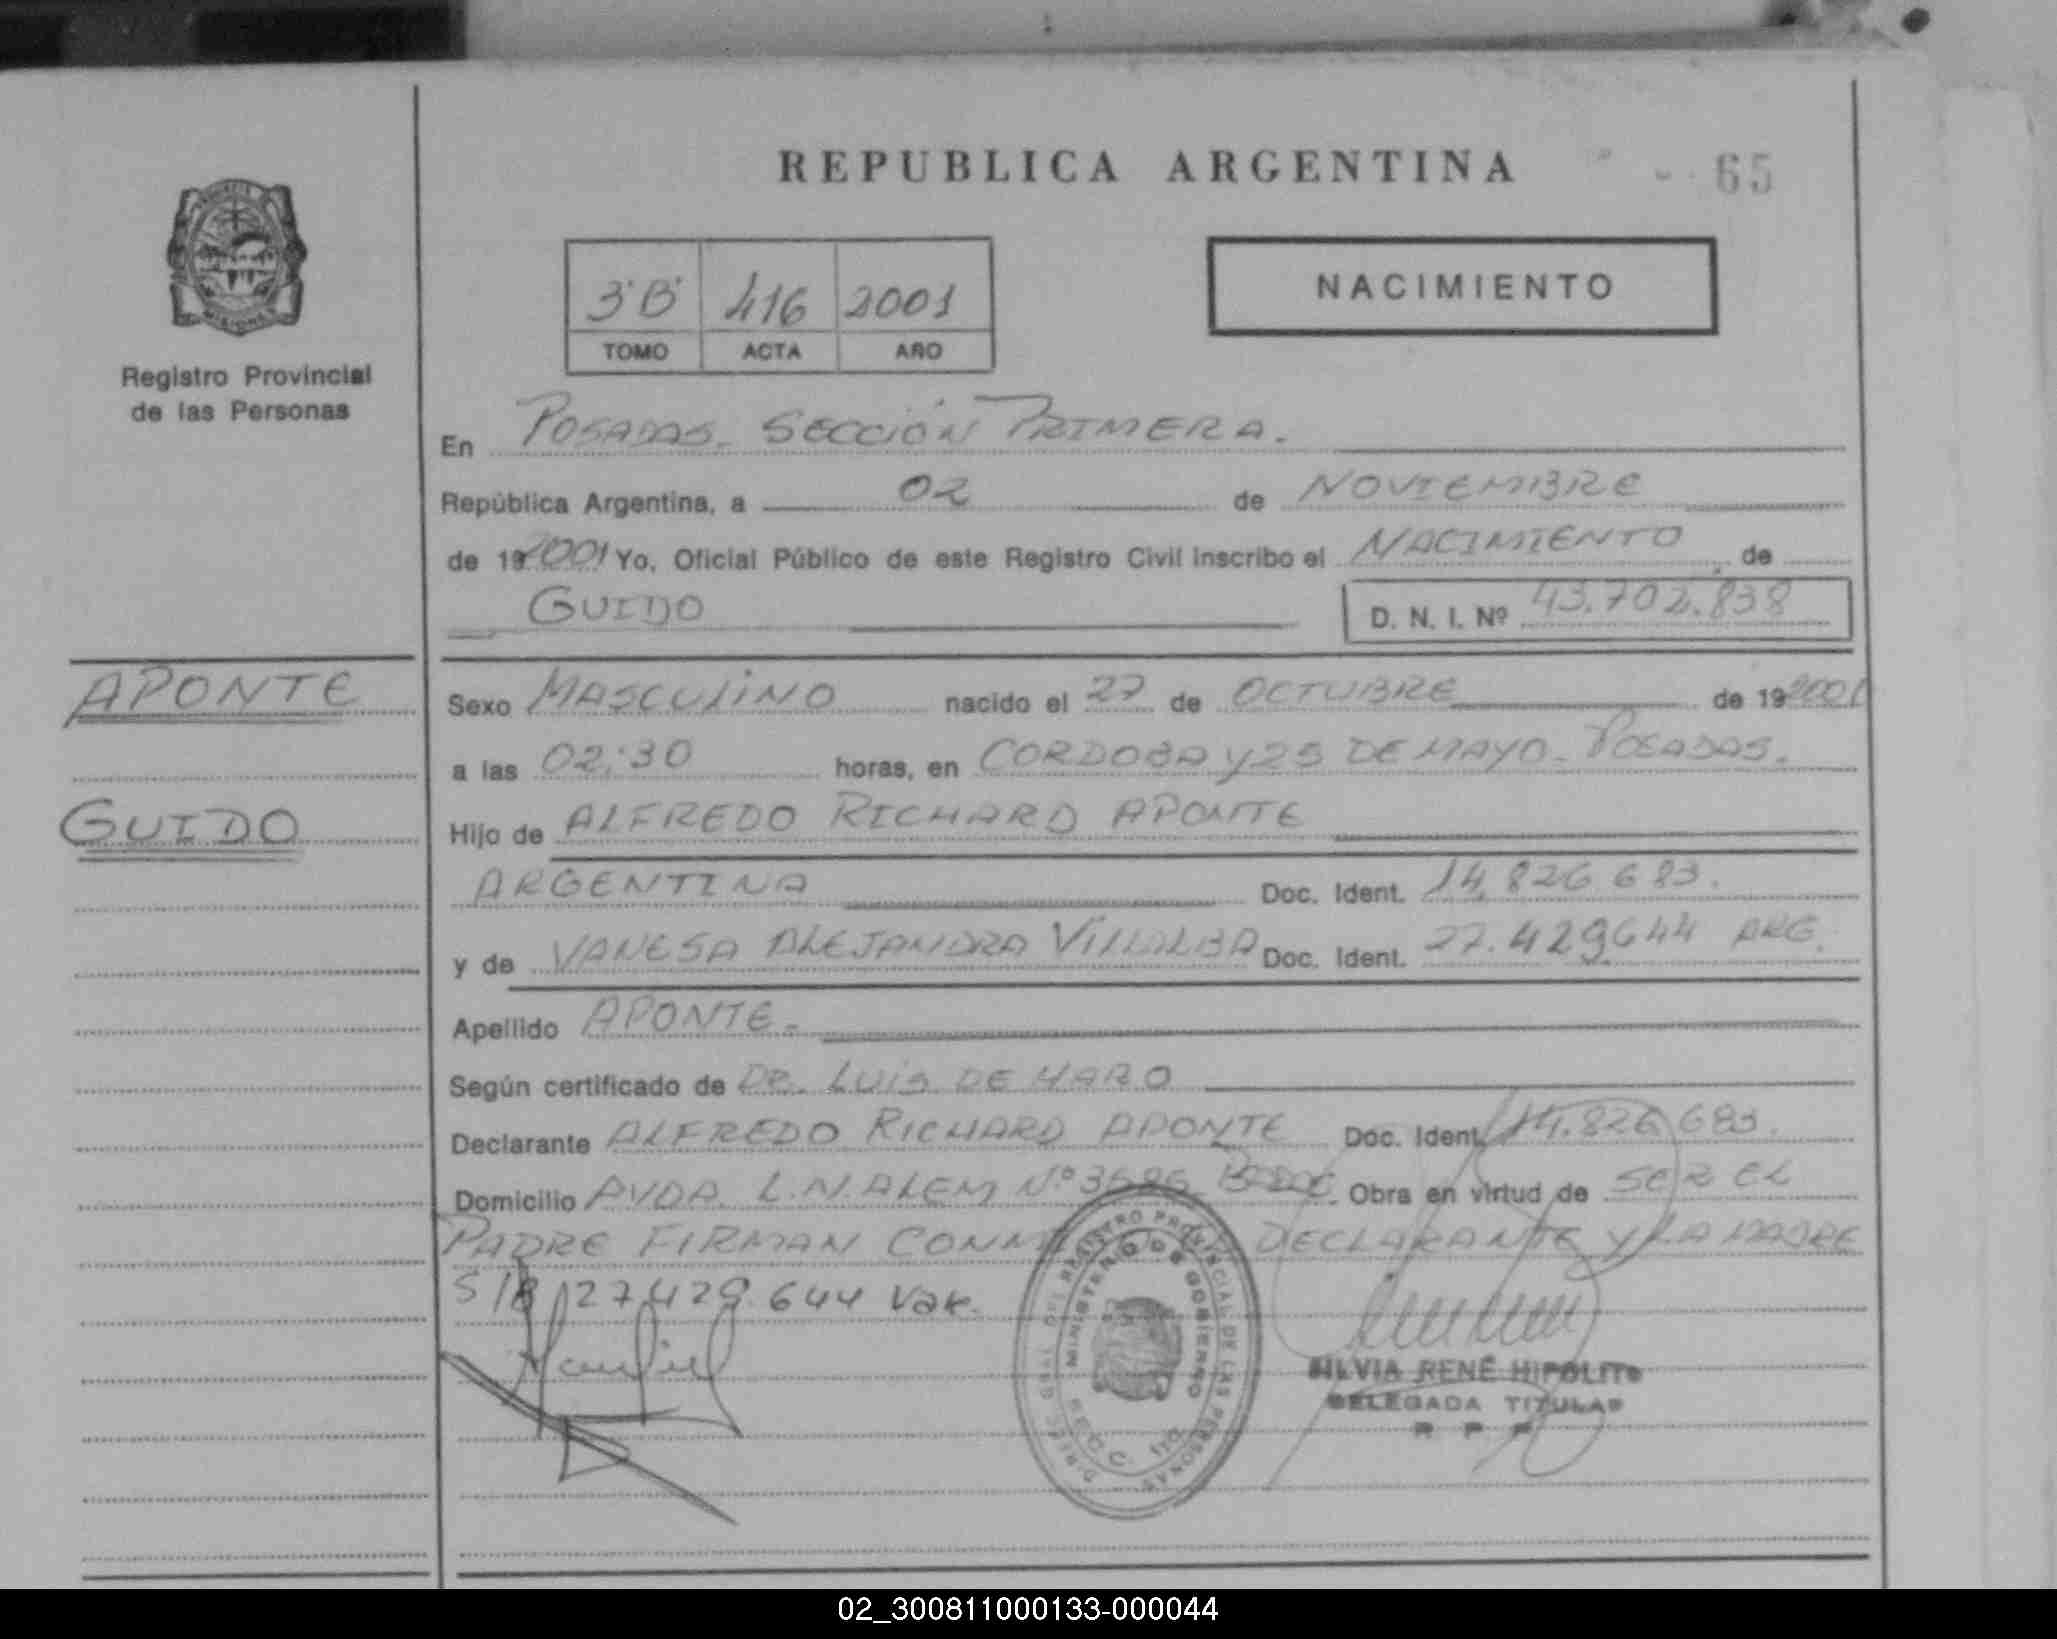 REPUBLICA ARGENTINA
65
MISIONES
Registro Provincial
de las Personas
3"B" 416 2001
TOMO ACTA AÑO
NACIMIENTO
En POSADAS. SECCIÓN PRIMERA.
República Argentina, a 02 de NOVIEMBRE
de 19 2001 Yo, Oficial Público de este Registro Civil inscribo el NACIMIENTO de
GUIDO D. N. I. Nº 43.702.838
APONTE
GUIDO
Sexo MASCULINO nacido el 27 de OCTUBRE de 19 2001
a las 02:30 horas, en CORDOBA y 25 DE MAYO - POSADAS.
Hijo de ALFREDO RICHARD APONTE
ARGENTINA Doc. Ident. 14.826 683.
y de VANESA ALEJANDRA VILLALBA Doc. Ident. 27.429644 ARG.
Apellido APONTE -
Según certificado de DR. LUIS DE HARO
Declarante ALFREDO RICHARD APONTE Doc. Ident. 14.826 683.
Domicilio AVDA. L.N. ALEM Nº Obra en virtud de SER EL
PADRE FIRMAN DECLARANTE y LA MADRE
S/B 27.429.644 Vale.
DIREC. GRAL. DEL REGISTRO PROVINCIAL DE LAS PERSONAS
MINISTERIO DE GOBIERNO
SECC. 1ra.
SILVIA RENÉ HIPOLITO
DELEGADA TITULAR
R P P
02_300811000133-000044